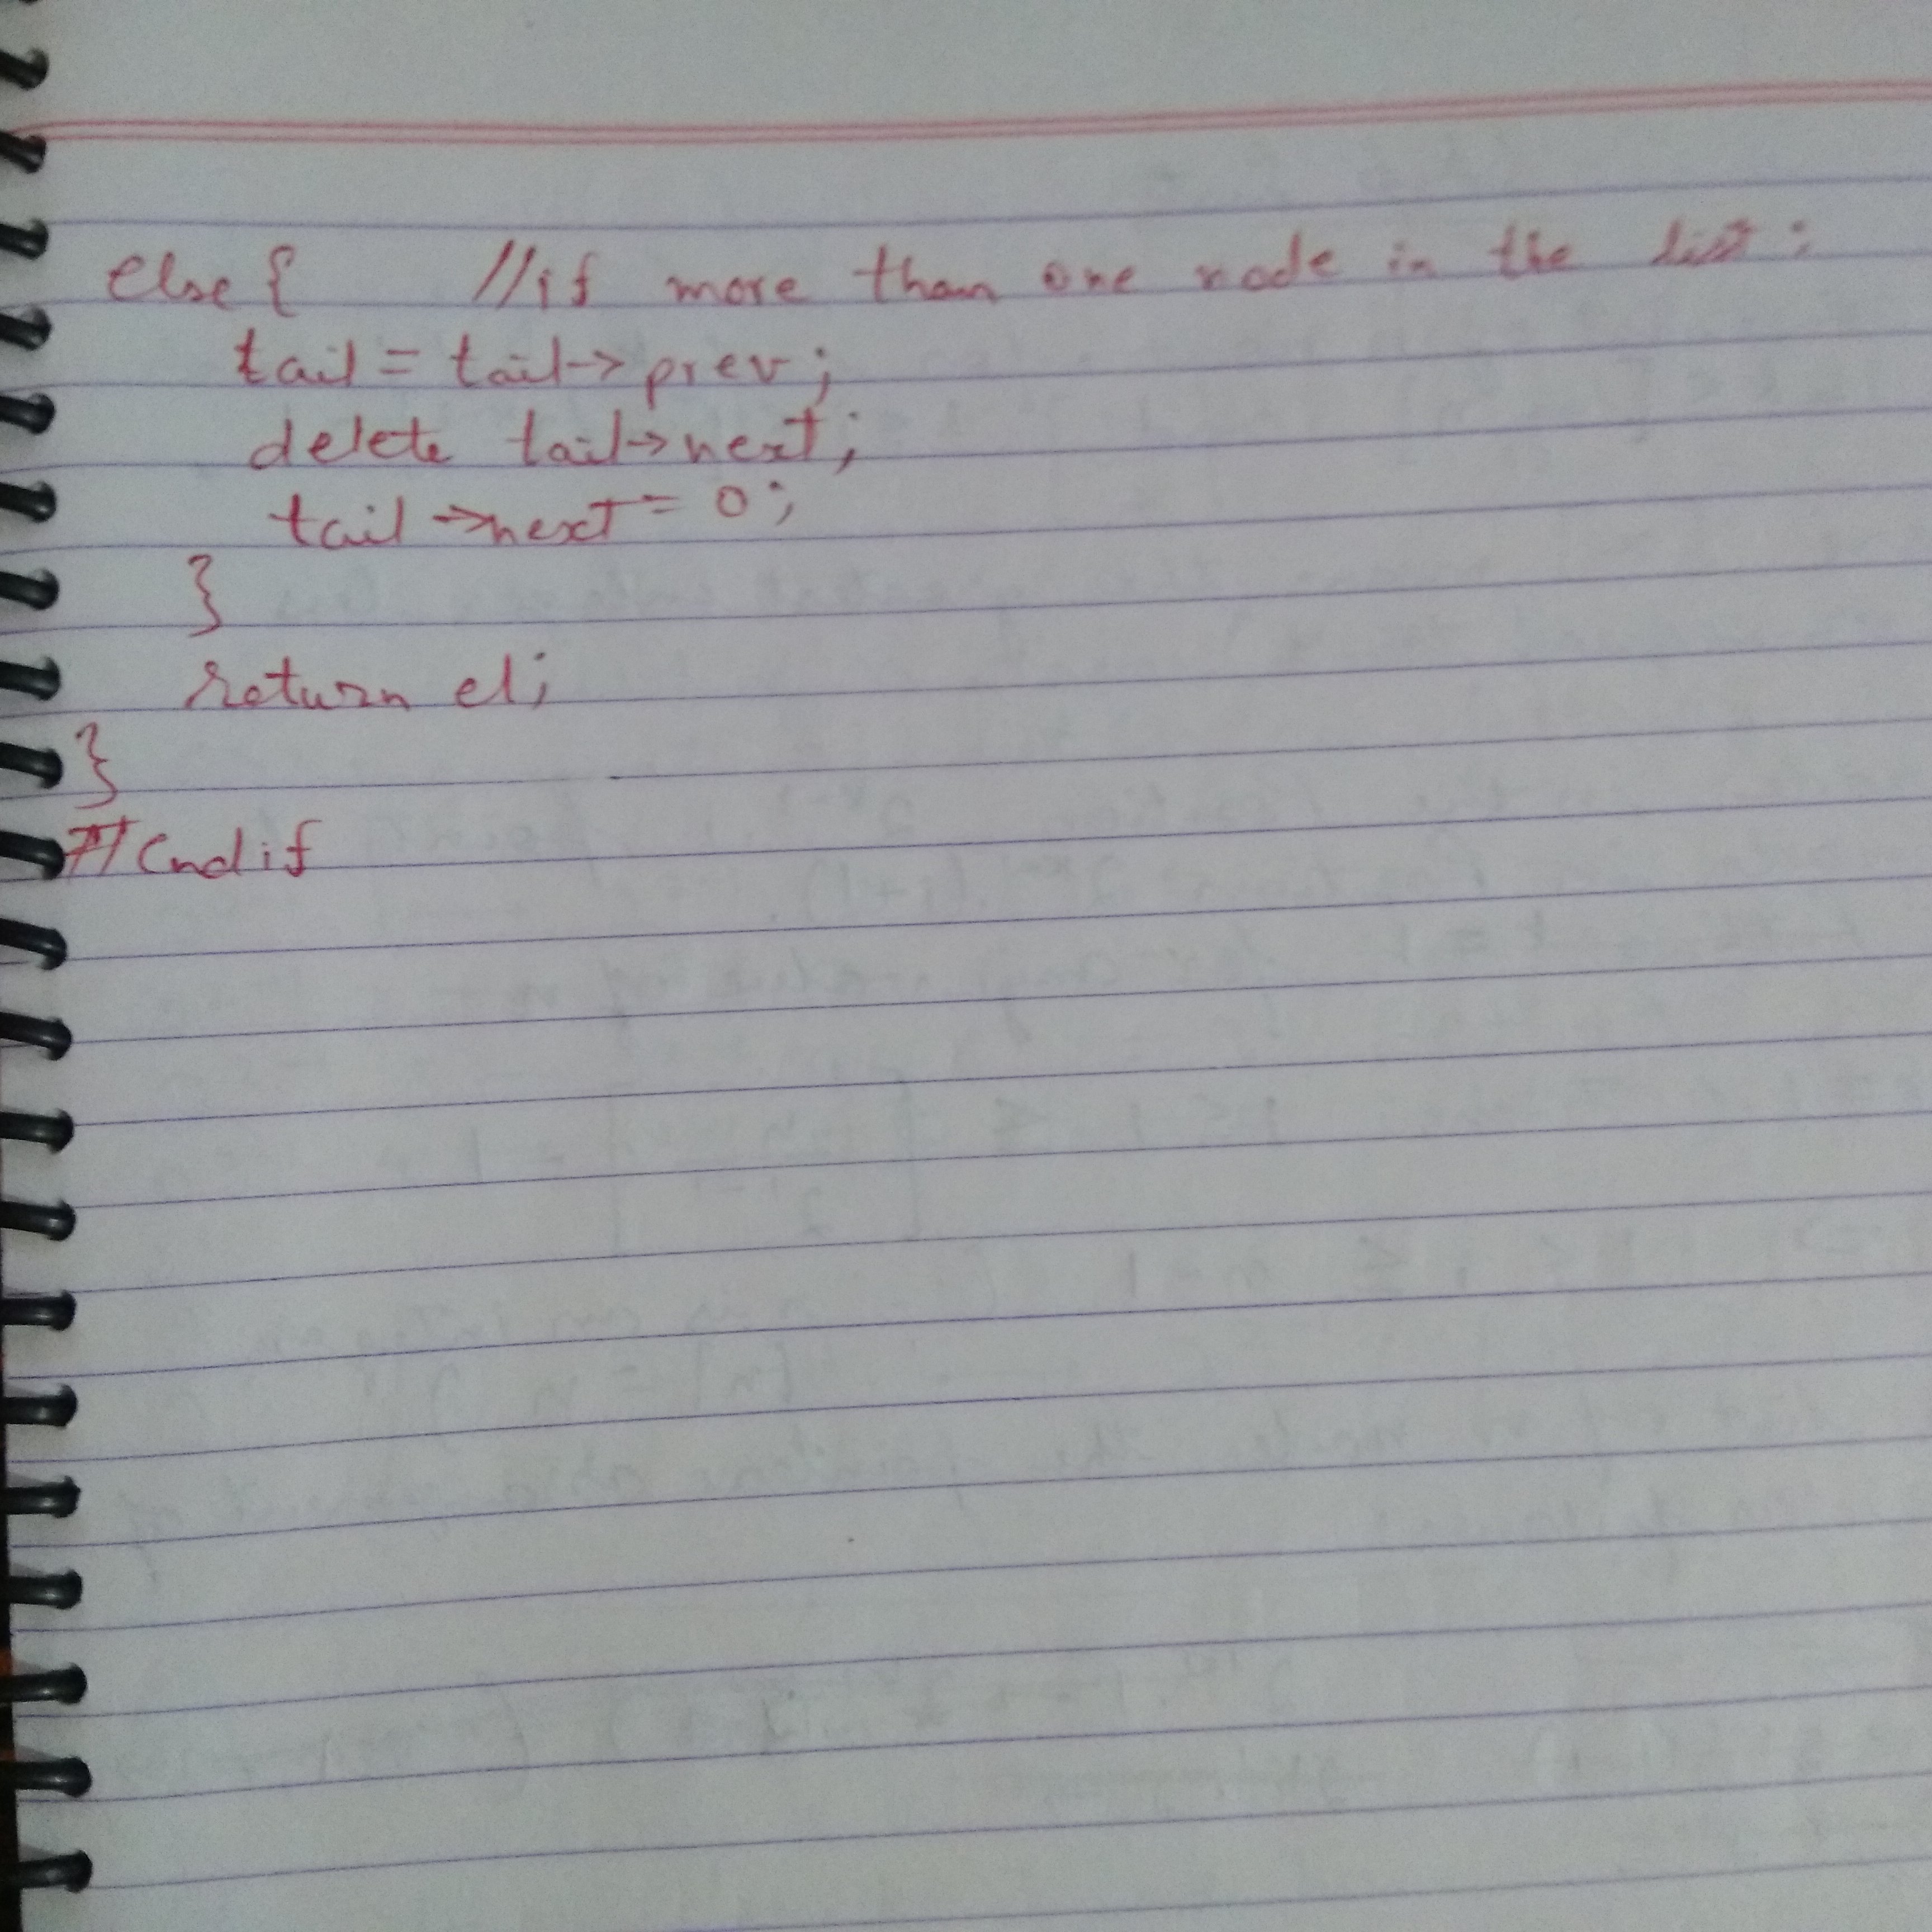 else {     //if more than one node in the list;
tail = tail->prev;
delete tail->next;
tail->next = 0;
}
return el;
}
#endif